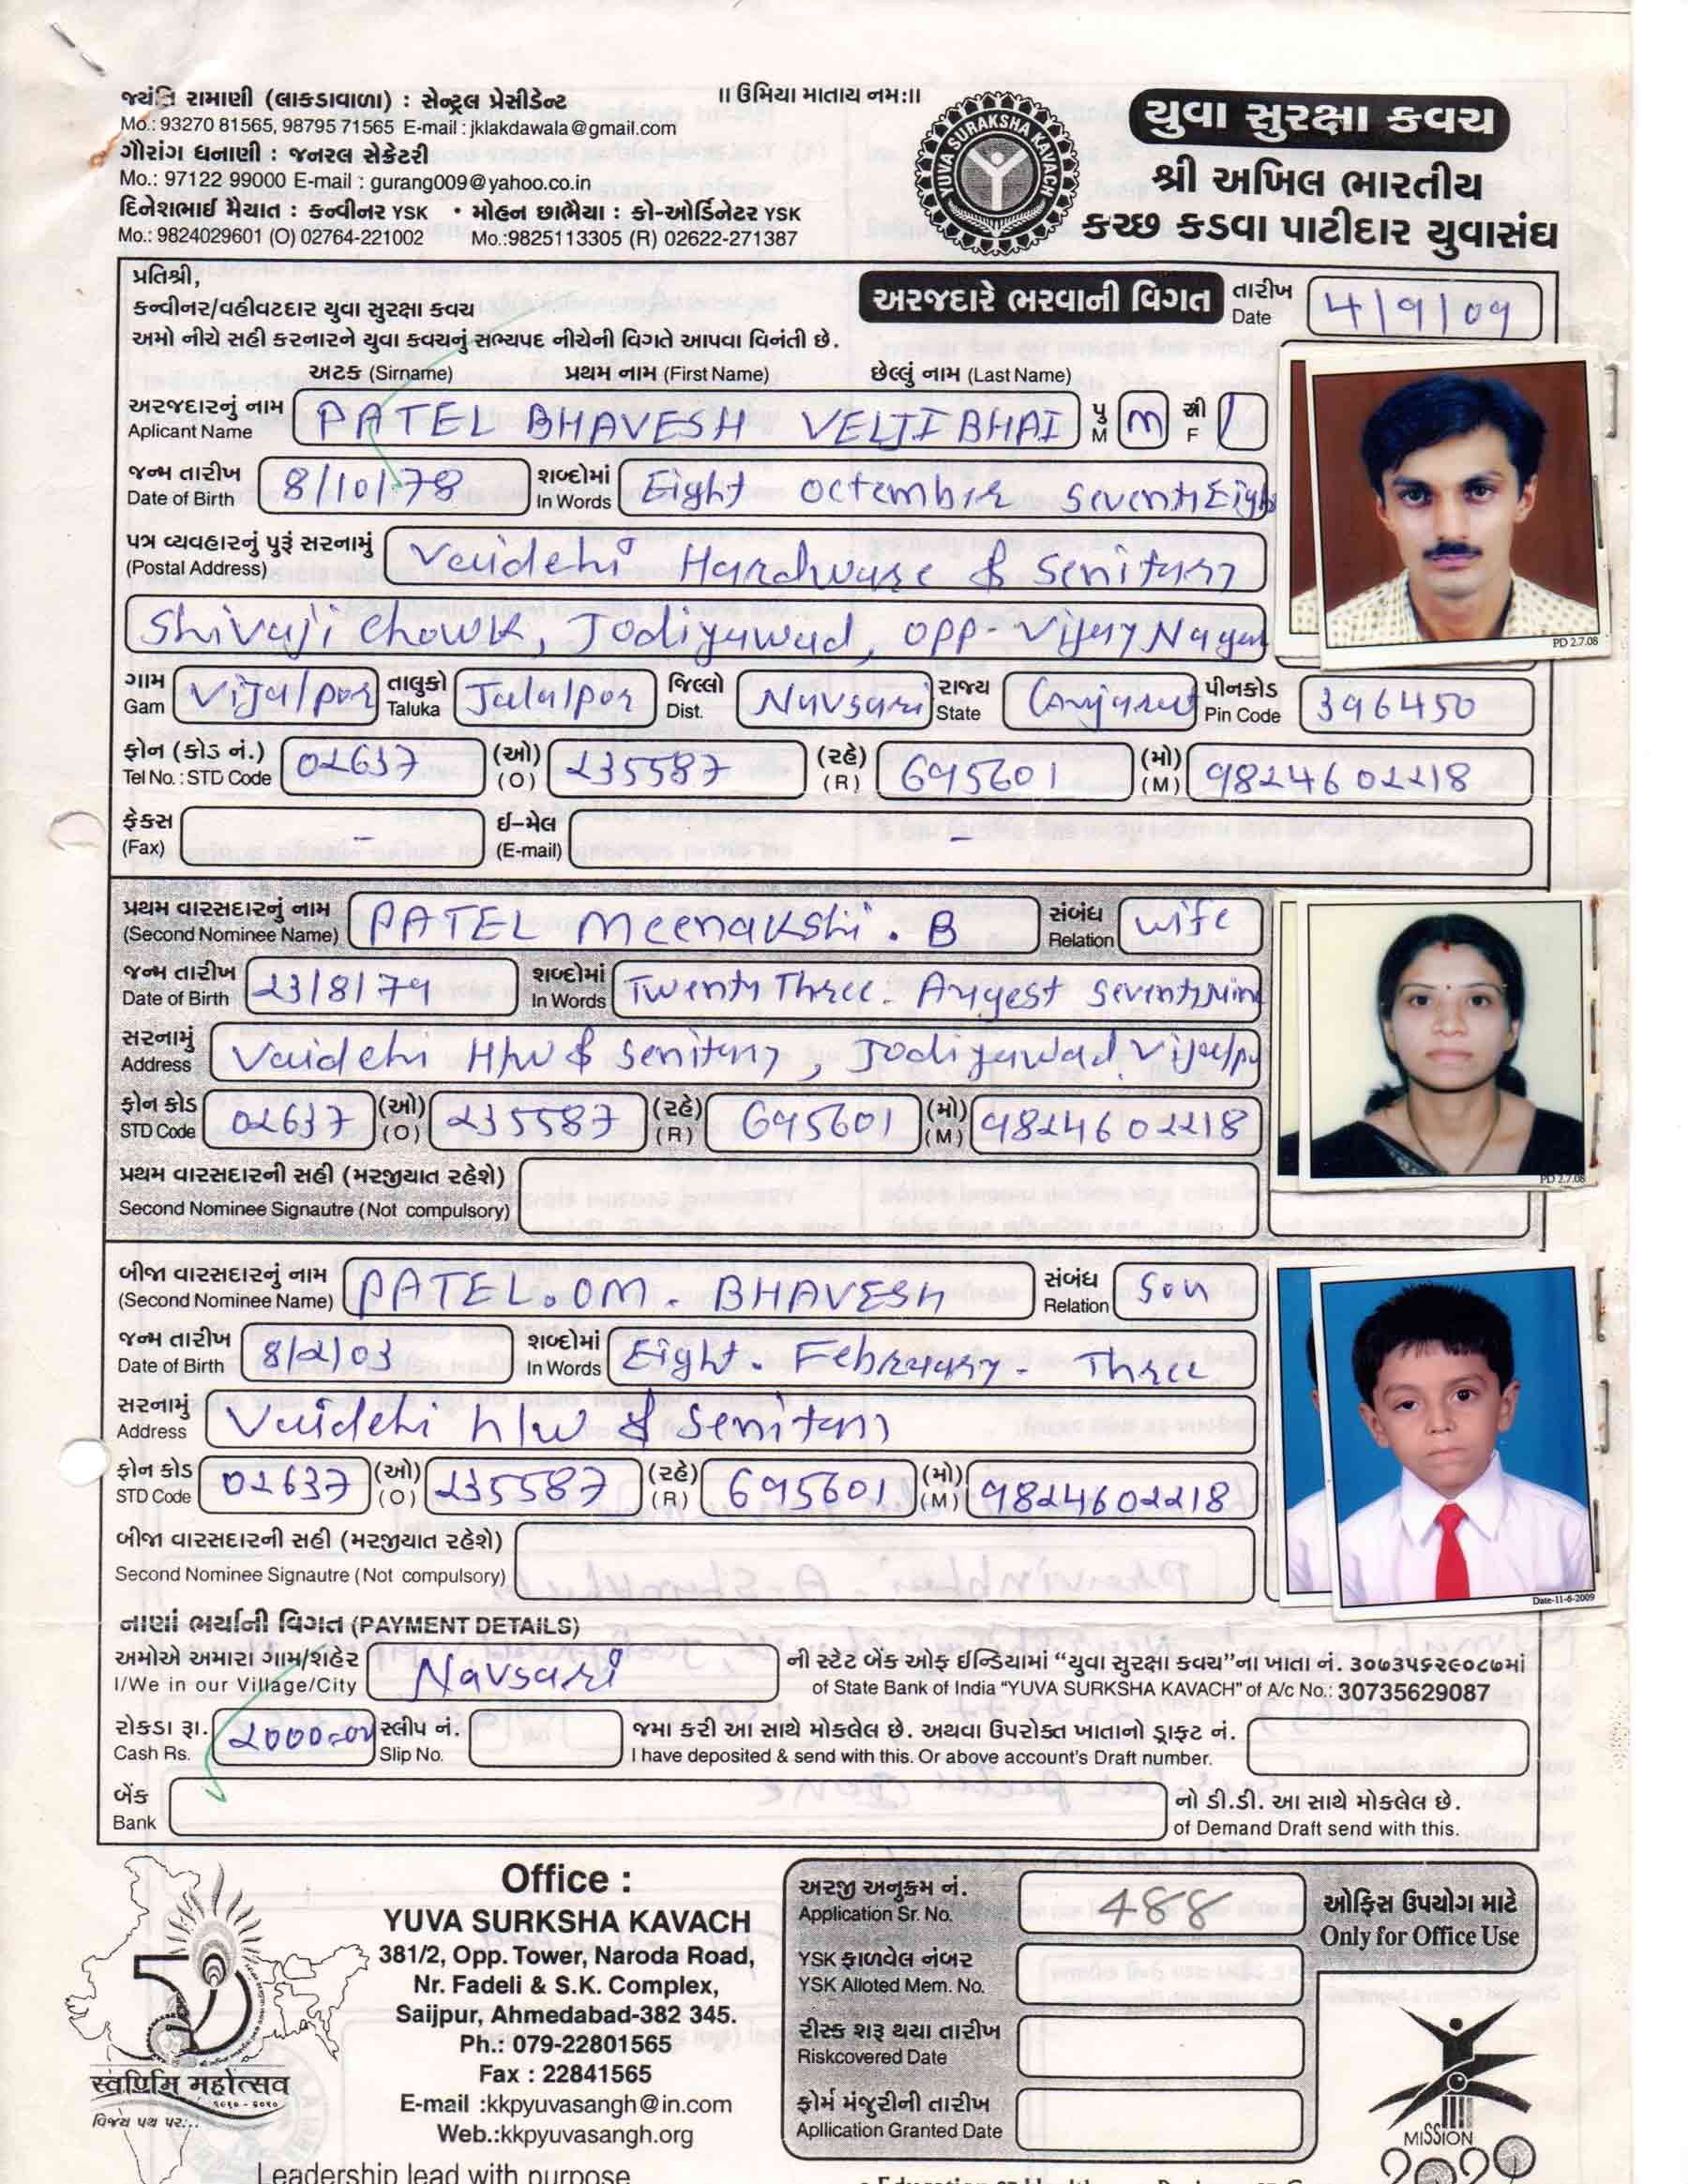 જયંતિ રામાણી (લાકડાવાળા) : સેન્ટ્રલ પ્રેસીડેન્ટ
Mo.: 93270 81565, 98795 71565 E-mail : jklakdawala@gmail.com
ગૌરાંગ ધનાણી : જનરલ સેક્રેટરી
Mo.: 97122 99000 E-mail : gurang009@yahoo.co.in
દિનેશભાઈ મૈયાત : કન્વીનર YSK • મોહન છાભૈયા : કો-ઓર્ડિનેટર YSK
Mo.: 9824029601 (O) 02764-221002 Mo.:9825113305 (R) 02622-271387
॥ ઉમિયા માતાય નમઃ॥
YUVA SURAKSHA KAVACH
યુવા સુરક્ષા કવચ
શ્રી અખિલ ભારતીય
કચ્છ કડવા પાટીદાર યુવાસંઘ
પ્રતિશ્રી,
કન્વીનર/વહીવટદાર યુવા સુરક્ષા કવચ
અમો નીચે સહી કરનારને યુવા કવચનું સભ્યપદ નીચેની વિગતે આપવા વિનંતી છે.
અરજદારે ભરવાની વિગત તારીખ Date 4/9/09
અટક (Sirname) પ્રથમ નામ (First Name) છેલ્લું નામ (Last Name)
અરજદારનું નામ Aplicant Name PATEL BHAVESH VELJIBHAI પુ M M સ્ત્રી F /
જન્મ તારીખ Date of Birth 8/10/78 શબ્દોમાં In Words Eight octembir SeventiEight
પત્ર વ્યવહારનું પુરૂં સરનામું (Postal Address) Vaidehi Hardware & Senitary
Shivaji chowk, Jodiyawad, opp- Vijay Nagar
PD 2.7.08
ગામ Gam Vijalpor તાલુકો Taluka Jalalpor જિલ્લો Dist. Navsari રાજ્ય State Gujarat પીનકોડ Pin Code 396450
ફોન (કોડ નં.) Tel No. : STD Code 02637 (ઓ) (O) 235587 (રહે) (R) 695601 (મો) (M) 9824602218
ફેક્સ (Fax) - ઈ-મેલ (E-mail) -
પ્રથમ વારસદારનું નામ (Second Nominee Name) PATEL Meenakshi . B સંબંધ Relation wife
જન્મ તારીખ Date of Birth 23/8/79 શબ્દોમાં In Words Twenty Three. Augest Seventynine
સરનામું Address Vaidehi H/w & Senitary, Jodiyawad Vijalpor
ફોન કોડ STD Code 02637 (ઓ) (O) 235587 (રહે) (R) 695601 (મો) (M) 9824602218
PD 2.7.08
પ્રથમ વારસદારની સહી (મરજીયાત રહેશે)
Second Nominee Signautre (Not compulsory)
બીજા વારસદારનું નામ (Second Nominee Name) PATEL. OM. BHAVESH સંબંધ Relation Son
જન્મ તારીખ Date of Birth 8/2/03 શબ્દોમાં In Words Eight. February. Three
સરનામું Address Vaidehi h/w & Senitary
ફોન કોડ STD Code 02637 (ઓ) (O) 235587 (રહે) (R) 695601 (મો) (M) 9824602218
બીજા વારસદારની સહી (મરજીયાત રહેશે)
Second Nominee Signautre (Not compulsory)
Date-11-6-2009
નાણાં ભર્યાની વિગત (PAYMENT DETAILS)
અમોએ અમારા ગામ/શહેર Navsari ની સ્ટેટ બેંક ઓફ ઈન્ડિયામાં “યુવા સુરક્ષા કવચ”ના ખાતા નં. ૩૦૭૩૫૬૨૯૦૮૭માં
I/We in our Village/City of State Bank of India “YUVA SURKSHA KAVACH” of A/c No.: 30735629087
રોકડા રૂા. 2000=00 સ્લીપ નં. જમા કરી આ સાથે મોકલેલ છે. અથવા ઉપરોક્ત ખાતાનો ડ્રાફ્ટ નં.
Cash Rs. Slip No. I have deposited & send with this. Or above account's Draft number.
બેંક નો ડી.ડી. આ સાથે મોકલેલ છે.
Bank of Demand Draft send with this.
50
स्वर्णिम महोत्सव
૨૦૧૦ - ૨૦૧૦
વિજય પથ પર...
Office :
YUVA SURKSHA KAVACH
381/2, Opp. Tower, Naroda Road,
Nr. Fadeli & S.K. Complex,
Saijpur, Ahmedabad-382 345.
Ph.: 079-22801565
Fax : 22841565
E-mail :kkpyuvasangh@in.com
Web.:kkpyuvasangh.org
અરજી અનુક્રમ નં. 488
Application Sr. No.
YSK ફાળવેલ નંબર
YSK Alloted Mem. No.
રીસ્ક શરૂ થયા તારીખ
Riskcovered Date
ફોર્મ મંજુરીની તારીખ
Apllication Granted Date
ઓફિસ ઉપયોગ માટે
Only for Office Use
MISSION
2020
Leadership lead with purpose